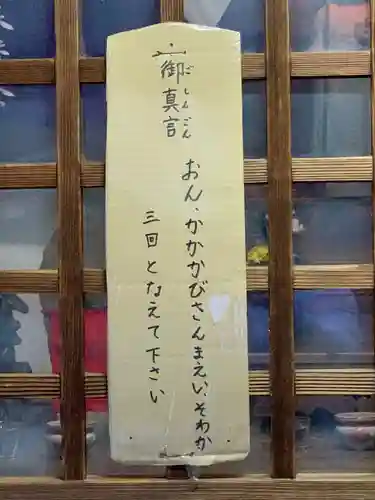 御真言
ごしんごん
おん、かかかびさんまえい、そわか
三回となえて下さい